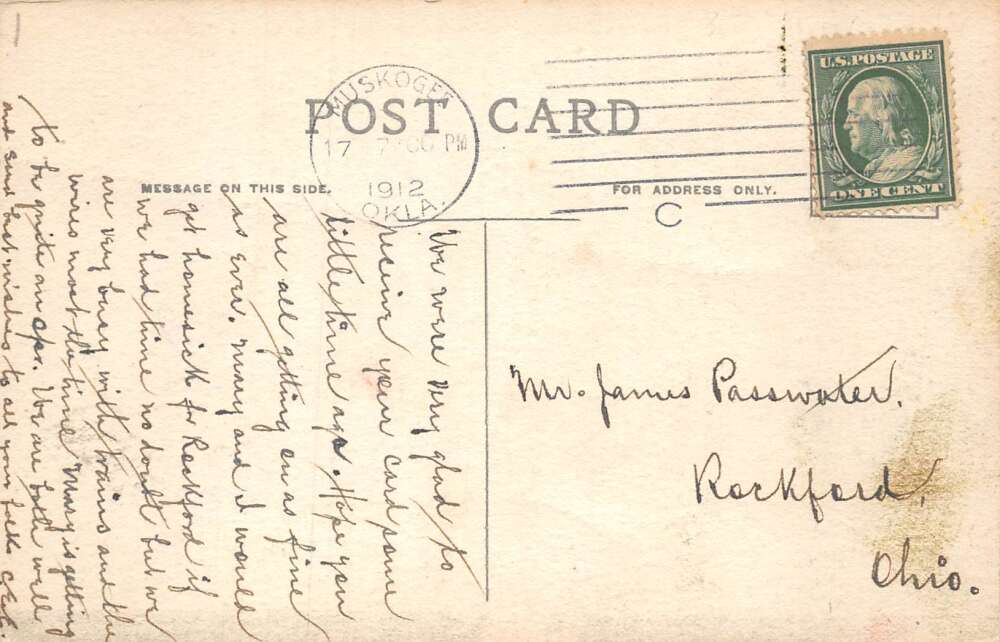 POST CARD
MUSKOGEE
17 7 PM
1912
OKLA.
U.S. POSTAGE
ONE CENT
MESSAGE ON THIS SIDE.
FOR ADDRESS ONLY.
C
We were very glad to
recieve your card some
little time ago. Hope you
are all getting on as fine
as ever. Mary and I would
get homesick for Rockford if
we had time no doubt but we
are very busy with trains and the
wires most the time Mary is getting
to be quite an opr. We are both well
and send best wishes to all your folks
Mr. James Passwater,
Rockford,
Ohio.